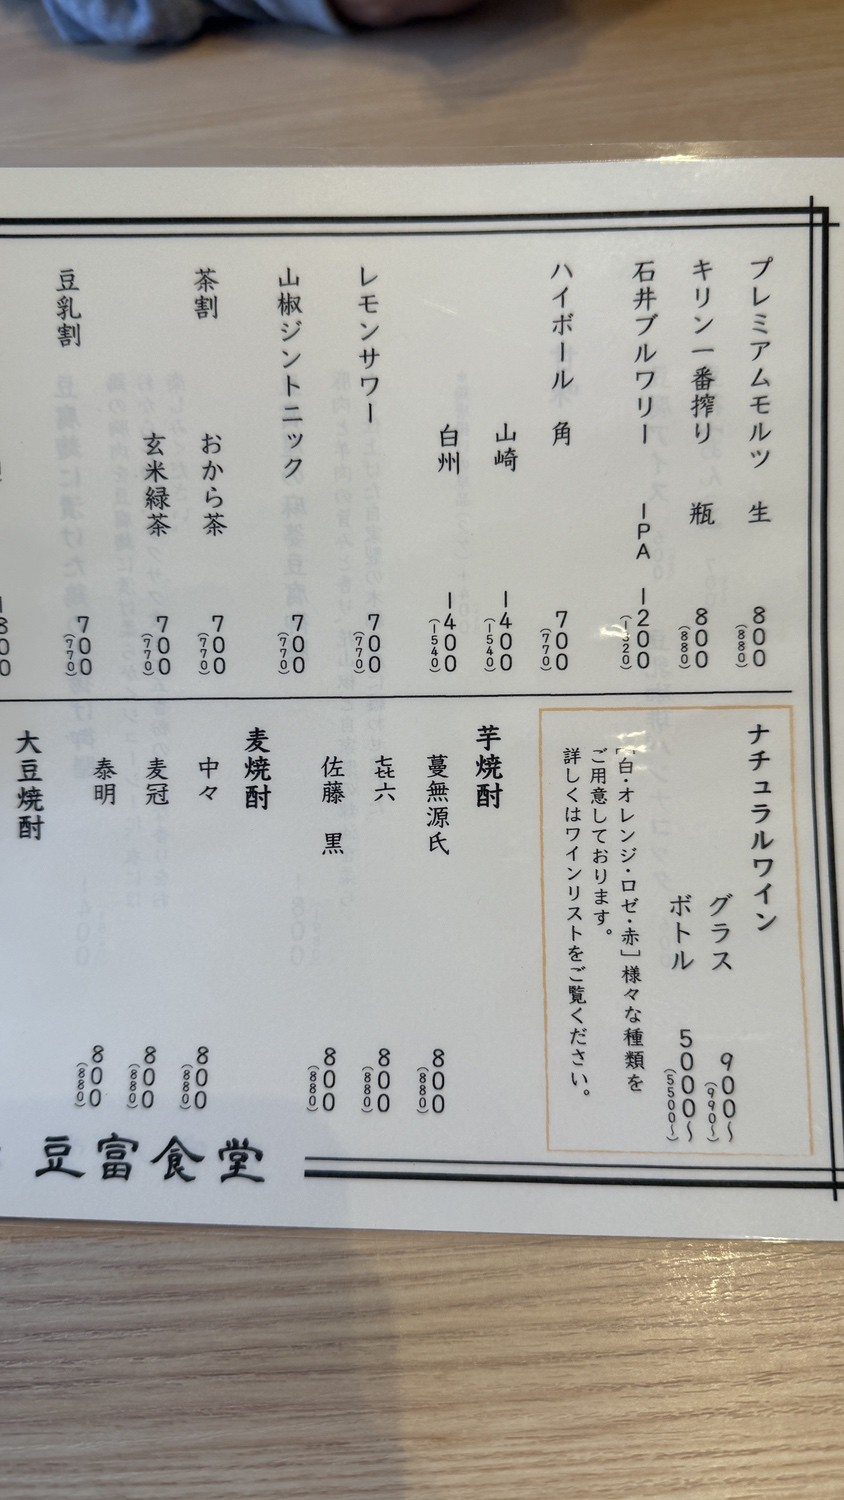 プレミアムモルツ 生 800 (880)
キリン一番搾り 瓶 800 (880)
石井ブルワリー IPA 1200 (1320)
ハイボール 角 700 (770)
山崎 1400 (1540)
白州 1400 (1540)
レモンサワー 700 (770)
山椒ジントニック 700 (770)
茶割 おから茶 700 (770)
玄米緑茶 700 (770)
豆乳割 700 (770)
ナチュラルワイン
グラス 900〜 (990〜)
ボトル 5000〜 (5500〜)
[白・オレンジ・ロゼ・赤]様々な種類を
ご用意しております。
詳しくはワインリストをご覧ください。
芋焼酎
蔓無源氏 800 (880)
㐂六 800 (880)
佐藤 黒 800 (880)
麦焼酎
中々 800 (880)
麦冠 800 (880)
泰明 800 (880)
大豆焼酎
豆富食堂